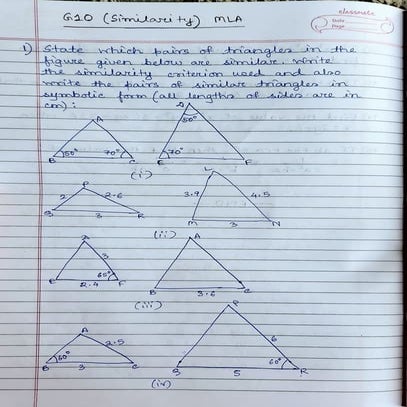 G10 (Similarity) MLA
classmate
Date
Page
1) State which pairs of triangles in the
figure given below are similar. Write
the similarity criterion used and also
write the pairs of similar triangles in
symbolic form (all lengths of sides are in
cm) :
A D
50°
B 50° 70° C E 70° F
(i)
P L
2 2.6 3.9 4.5
Q 3 R M 3 N
(ii)
D A
3
E 65° F B C
2.4 3.6
(iii)
A Q
2.5 6
B 60° 3 C 5 60° R
(iv)